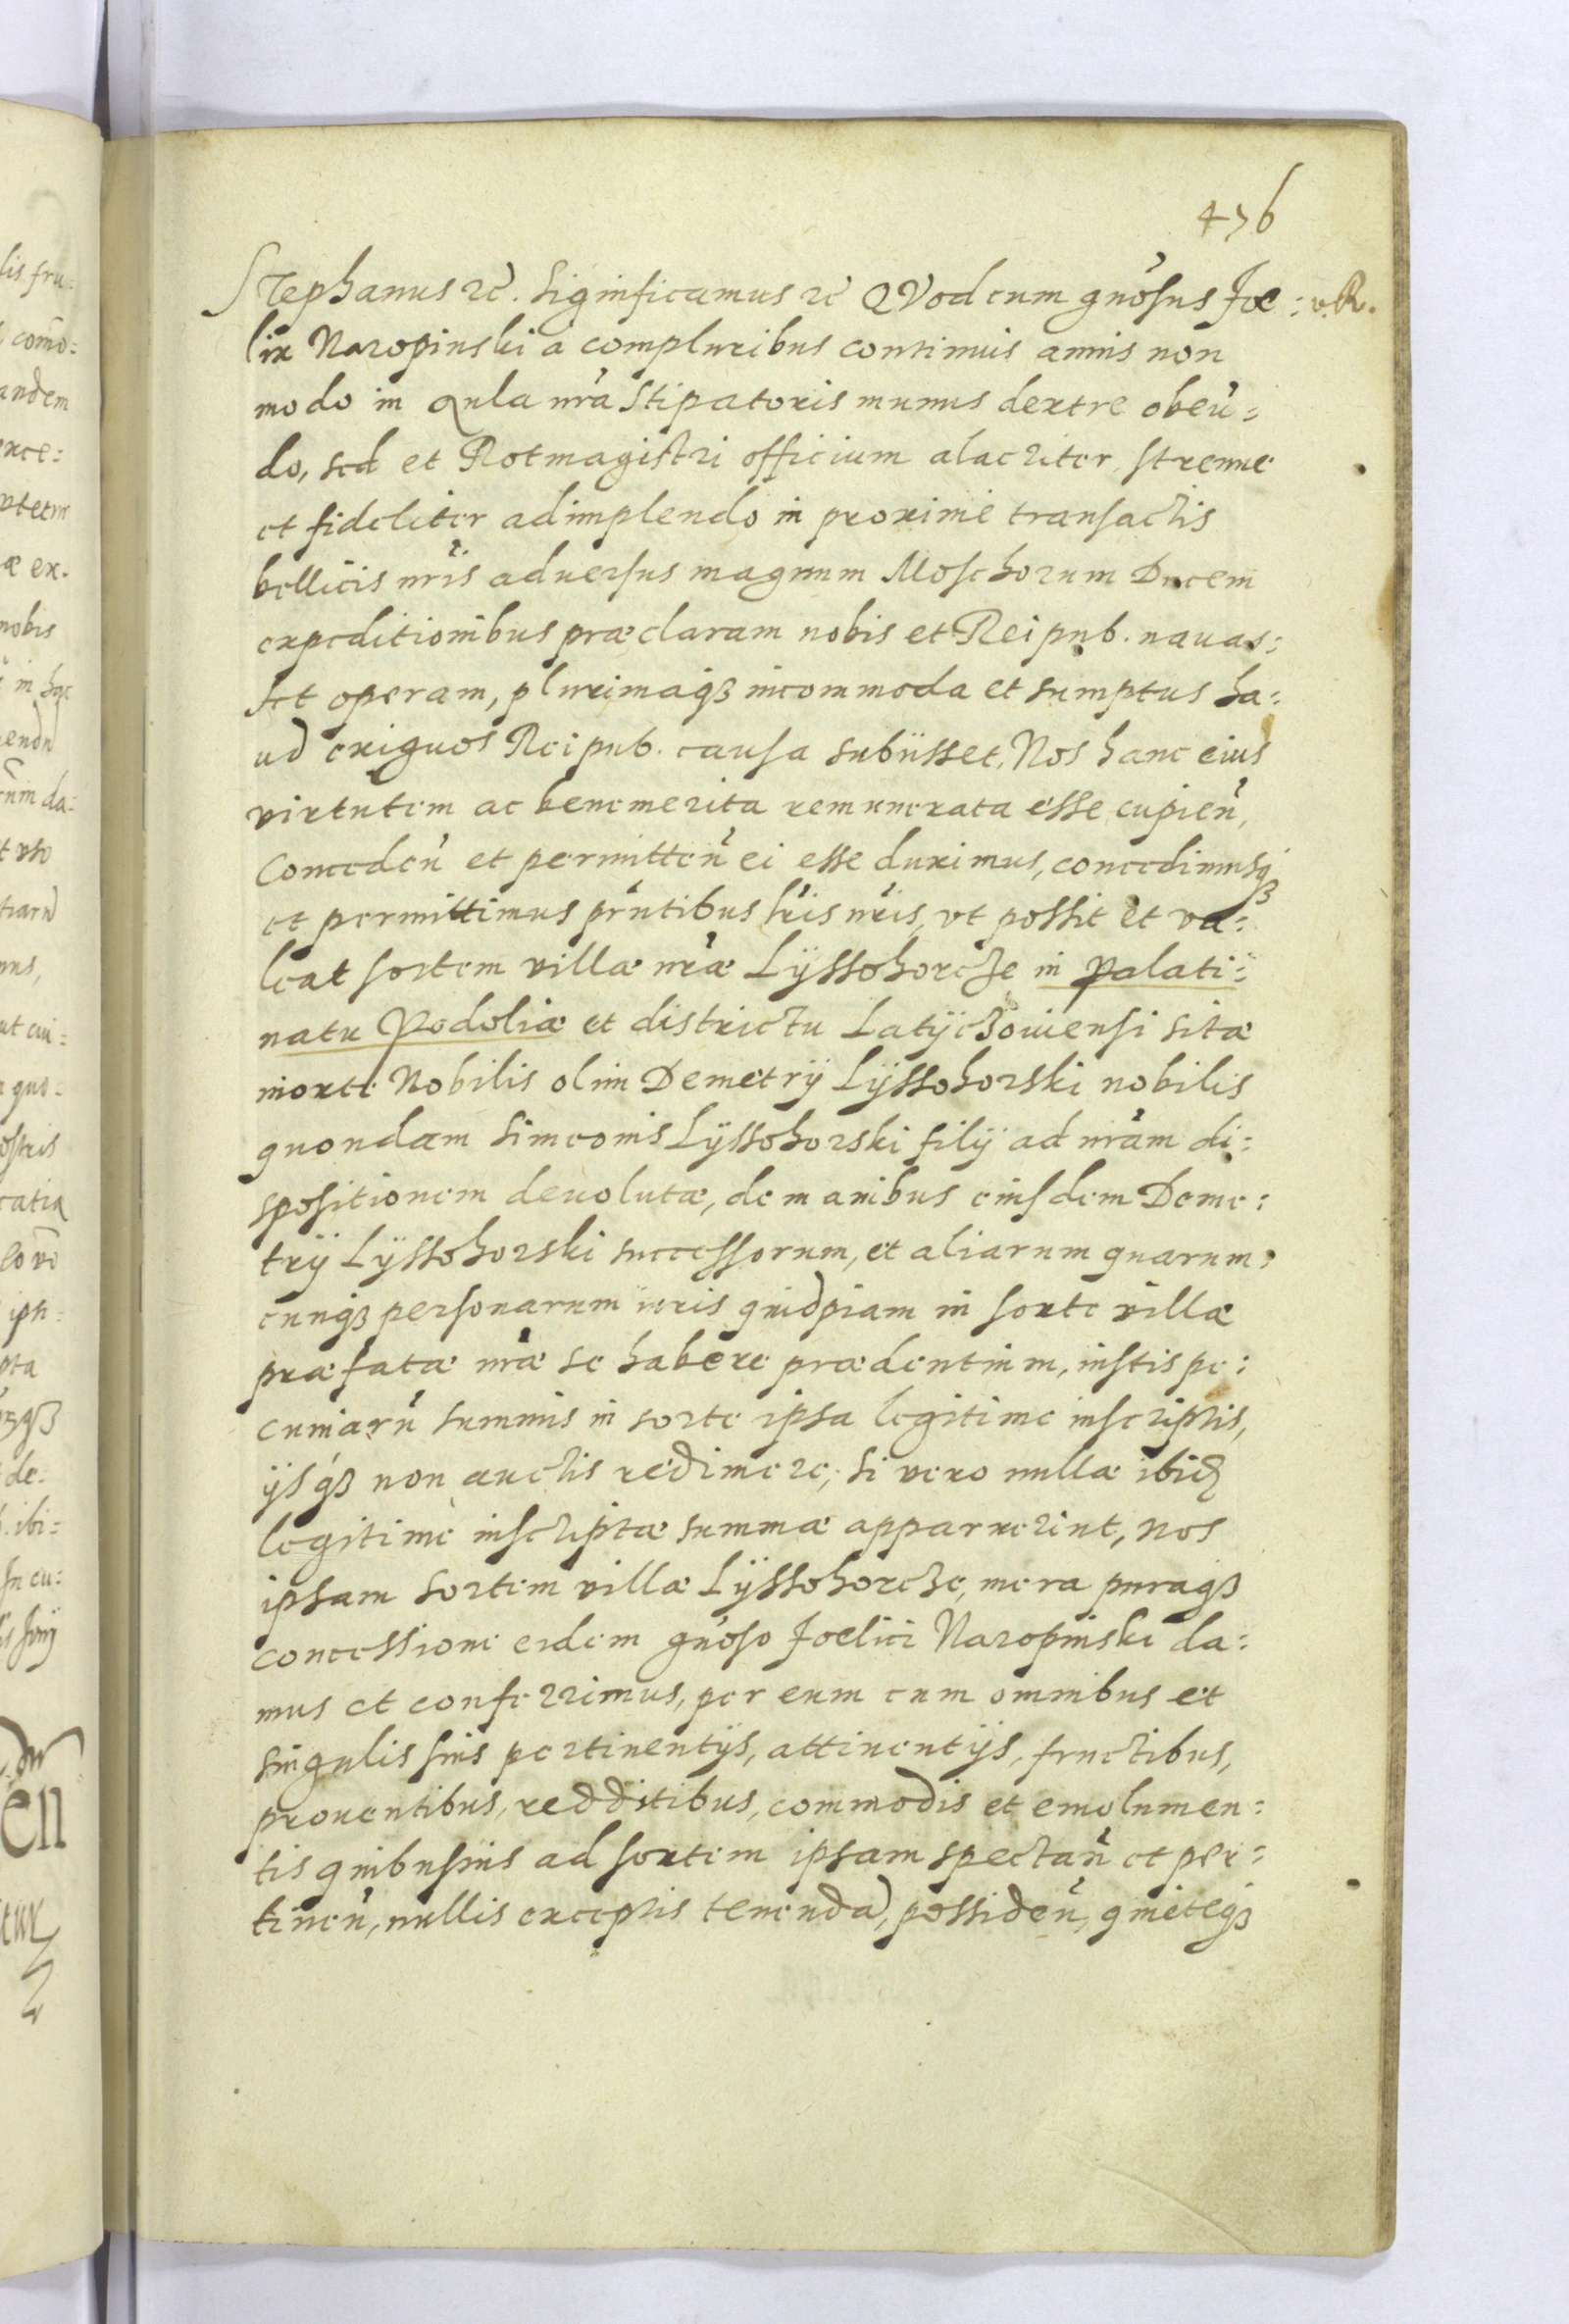 476
Stephanus rc̃. Significamus rc̃ QVod cum gnõsus Foe: v.R.
lix Naropinski a compluribus continuis annis non
modo in Aula nrã Stipatoris munus dextre obeũ:
do, sed et Rotmagistri officium alacriter, strenue
et fideliter adimplendo in proxime transactis
bellicis nrĩs aduersus magnum Moschorum Ducem
expeditionibus præclaram nobis et Reipub. nauas:
set operam, plurimaqȝ incommoda et sumptus ha:
ud exiguos Reipub. causa subijsset, Nos hanc eius
virtutem ac benemerita remunerata esse cupieñ,
Concedeñ et permitteñ ei esse duximus, concedimusqȝ
et permittimus prñtibus lrĩs nrĩs, vt possit et va:
leat sortem villæ nrãæ Lÿssohorcze in Palati:
natu Podoliæ et districtu Latÿczouiensi sitæ
morte Nobilis olim Demetrÿ Lÿssohorski nobilis
quondam Simeonis Lÿssohorski filÿ ad nrãm di:
spositionem deuolutæ, de manibus eiusdem Deme:
trÿ Lÿssohorski successorum, et aliarum quarum:
cunqȝ personarum iuris quidpiam in sorte villæ
præfatæ nrãæ se habere prædentium, iustis pe:
cuniarũ summis in sorte ipsa legitime inscriptis,
ijsqȝ non auctis redimere; si vero nullæ ibid
legitime inscriptæ summæ apparuerint, nos
ipsam sortem villæ Lÿssohorcze, mera puraqȝ
concessione eidem gnõso Foelici Naropinski da:
mus et conferrimus, per eum cum omnibus et
singulis suis pertinentijs, attinentijs, fructibus,
prouentibus, redditibus, commodis et emolumen:
tis quibusuis ad sortem ipsam spectañ et per:
tineñ, nullis exceptis tenenda, possideñ, quieteqȝ